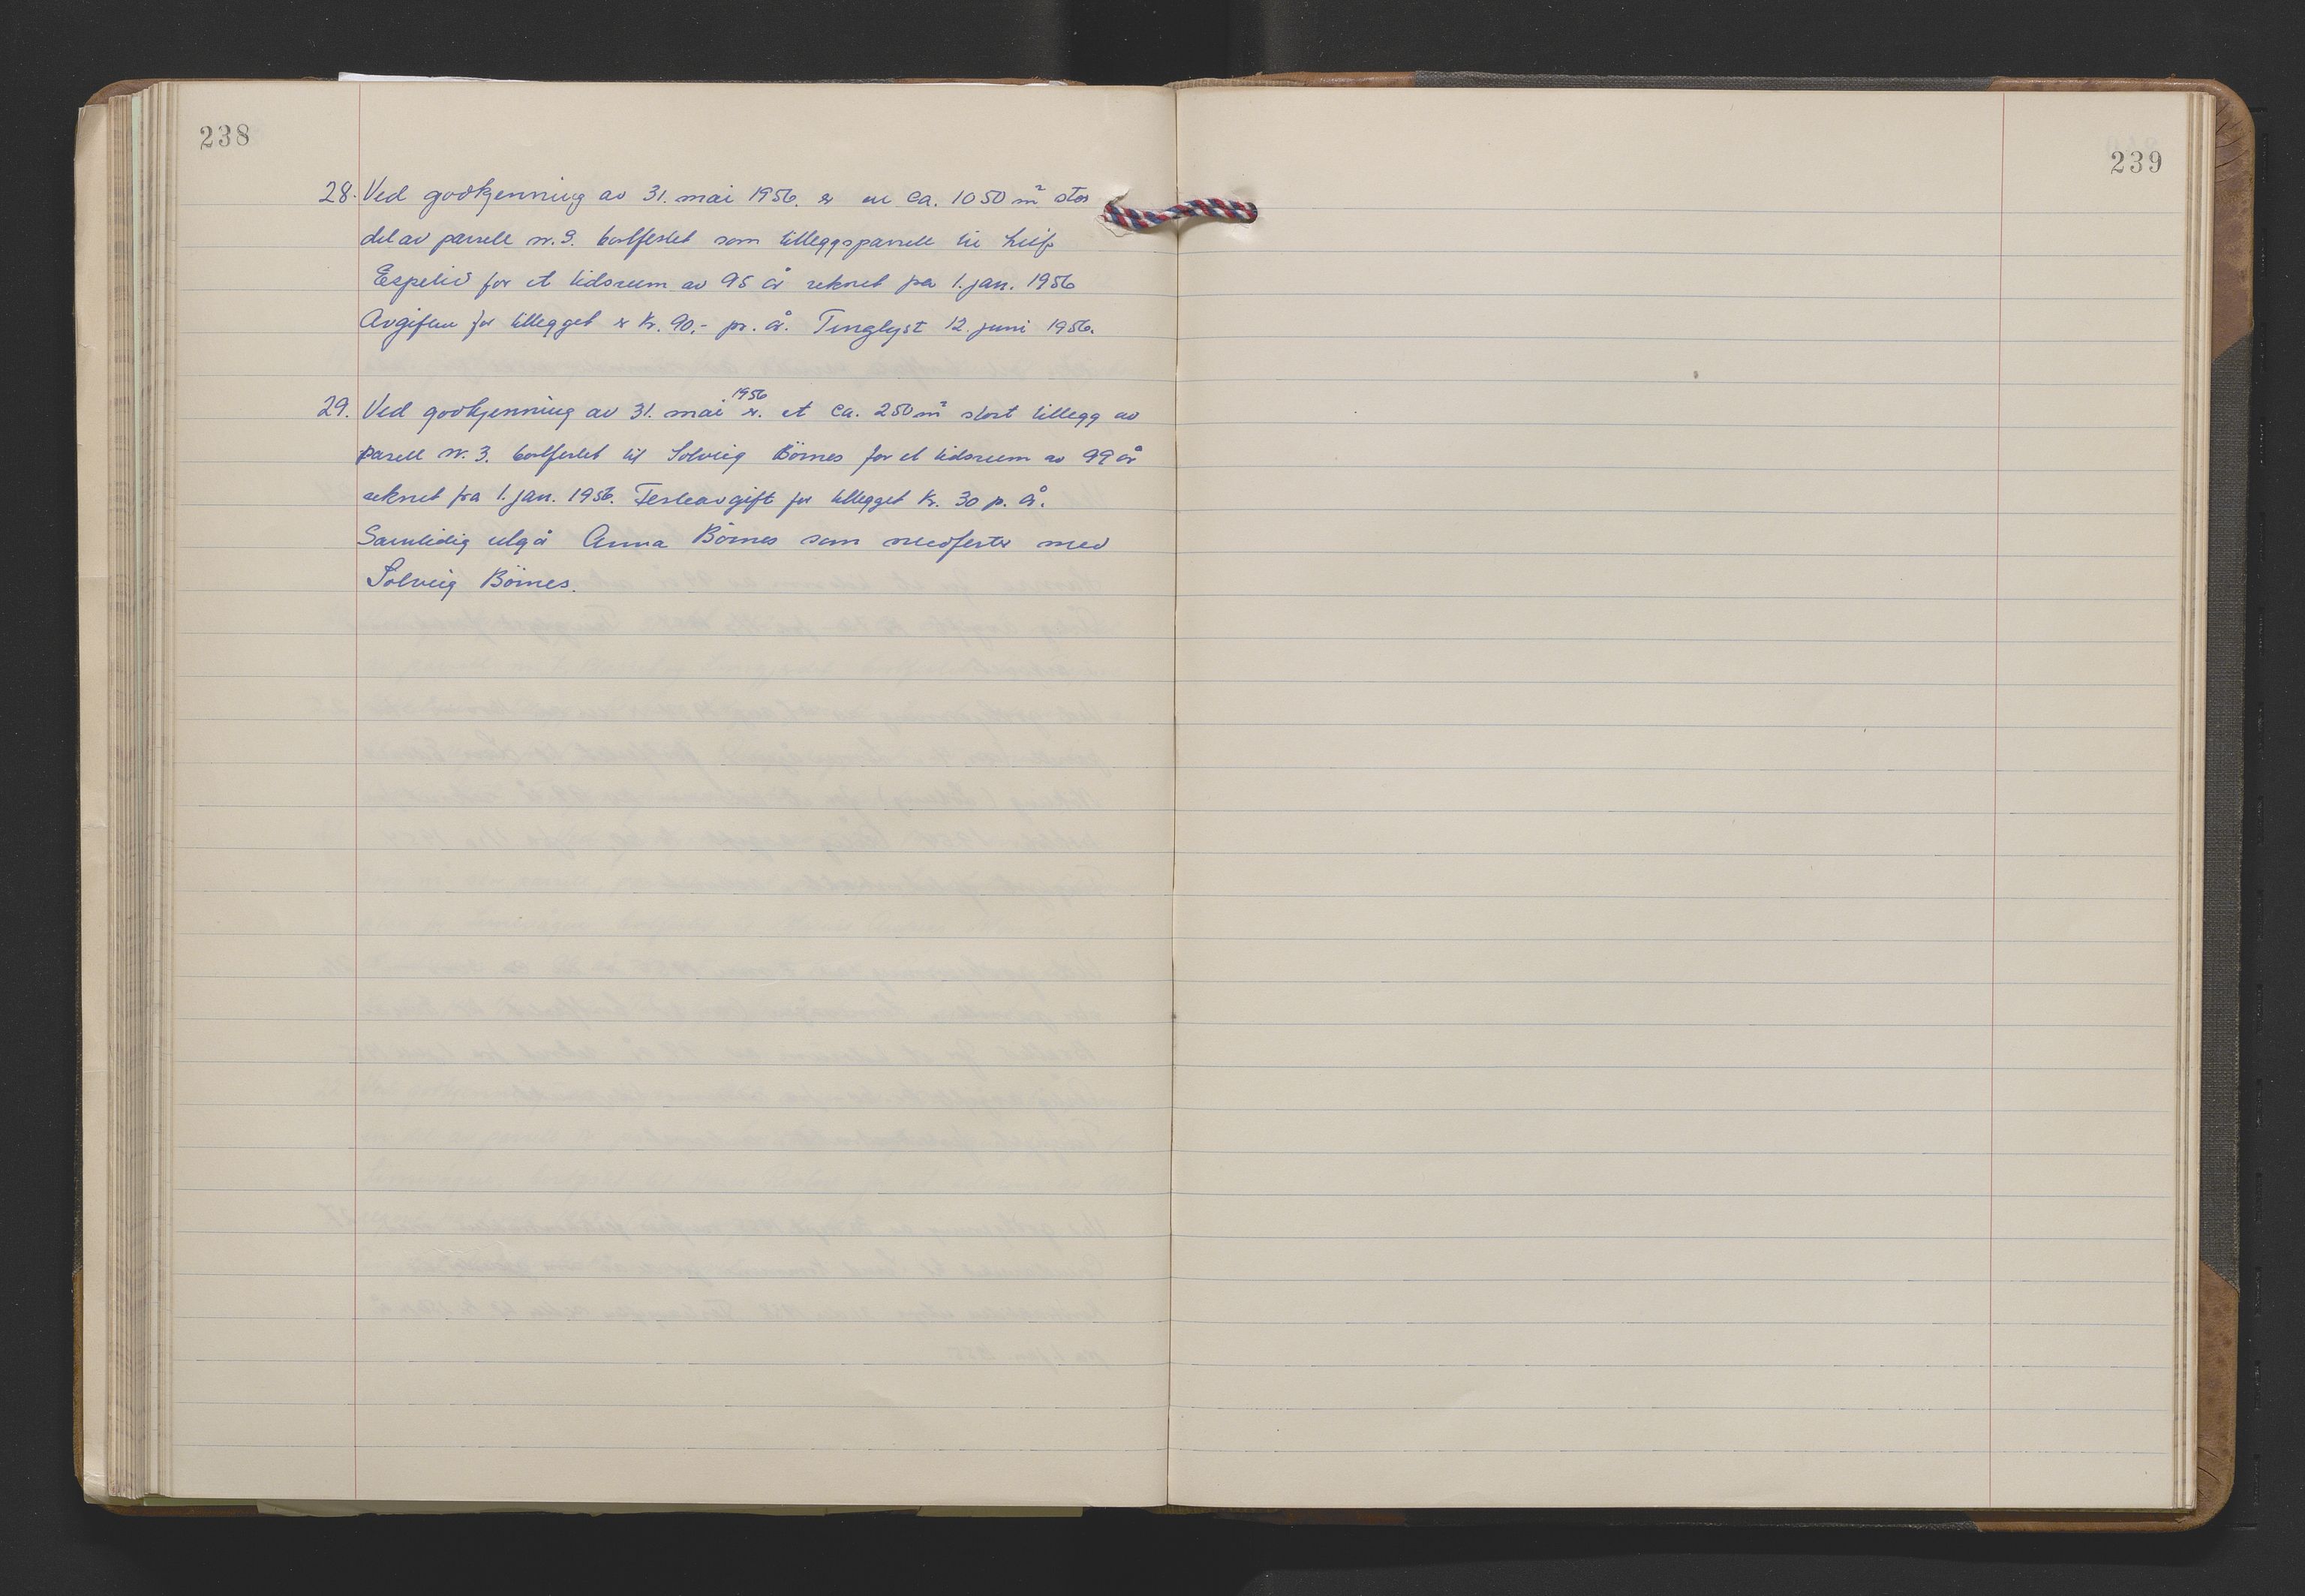 238
28. Ved godkjenning av 31. mai 1956. er en ca. 1050 m² stor
del av parsell nr. 9. bortfestet som tilleggsparsell til Leif
Espelid for et tidsrum av 95 år reknet fra 1. jan. 1956
Avgiften for tillegget er kr. 90,- pr. år. Tinglyst 12. juni 1956.
29. Ved godkjenning av 31. mai 1956 er. et ca. 250 m² stort tillegg av
parsell nr. 3. bortfestet til Solveig Börnes for et tidsrum av 99 år
reknet fra 1. jan. 1956. Festeavgift for tillegget kr. 30 p. år.
Samtidig utgår Anna Börnes som medfester med
Solveig Börnes.
239